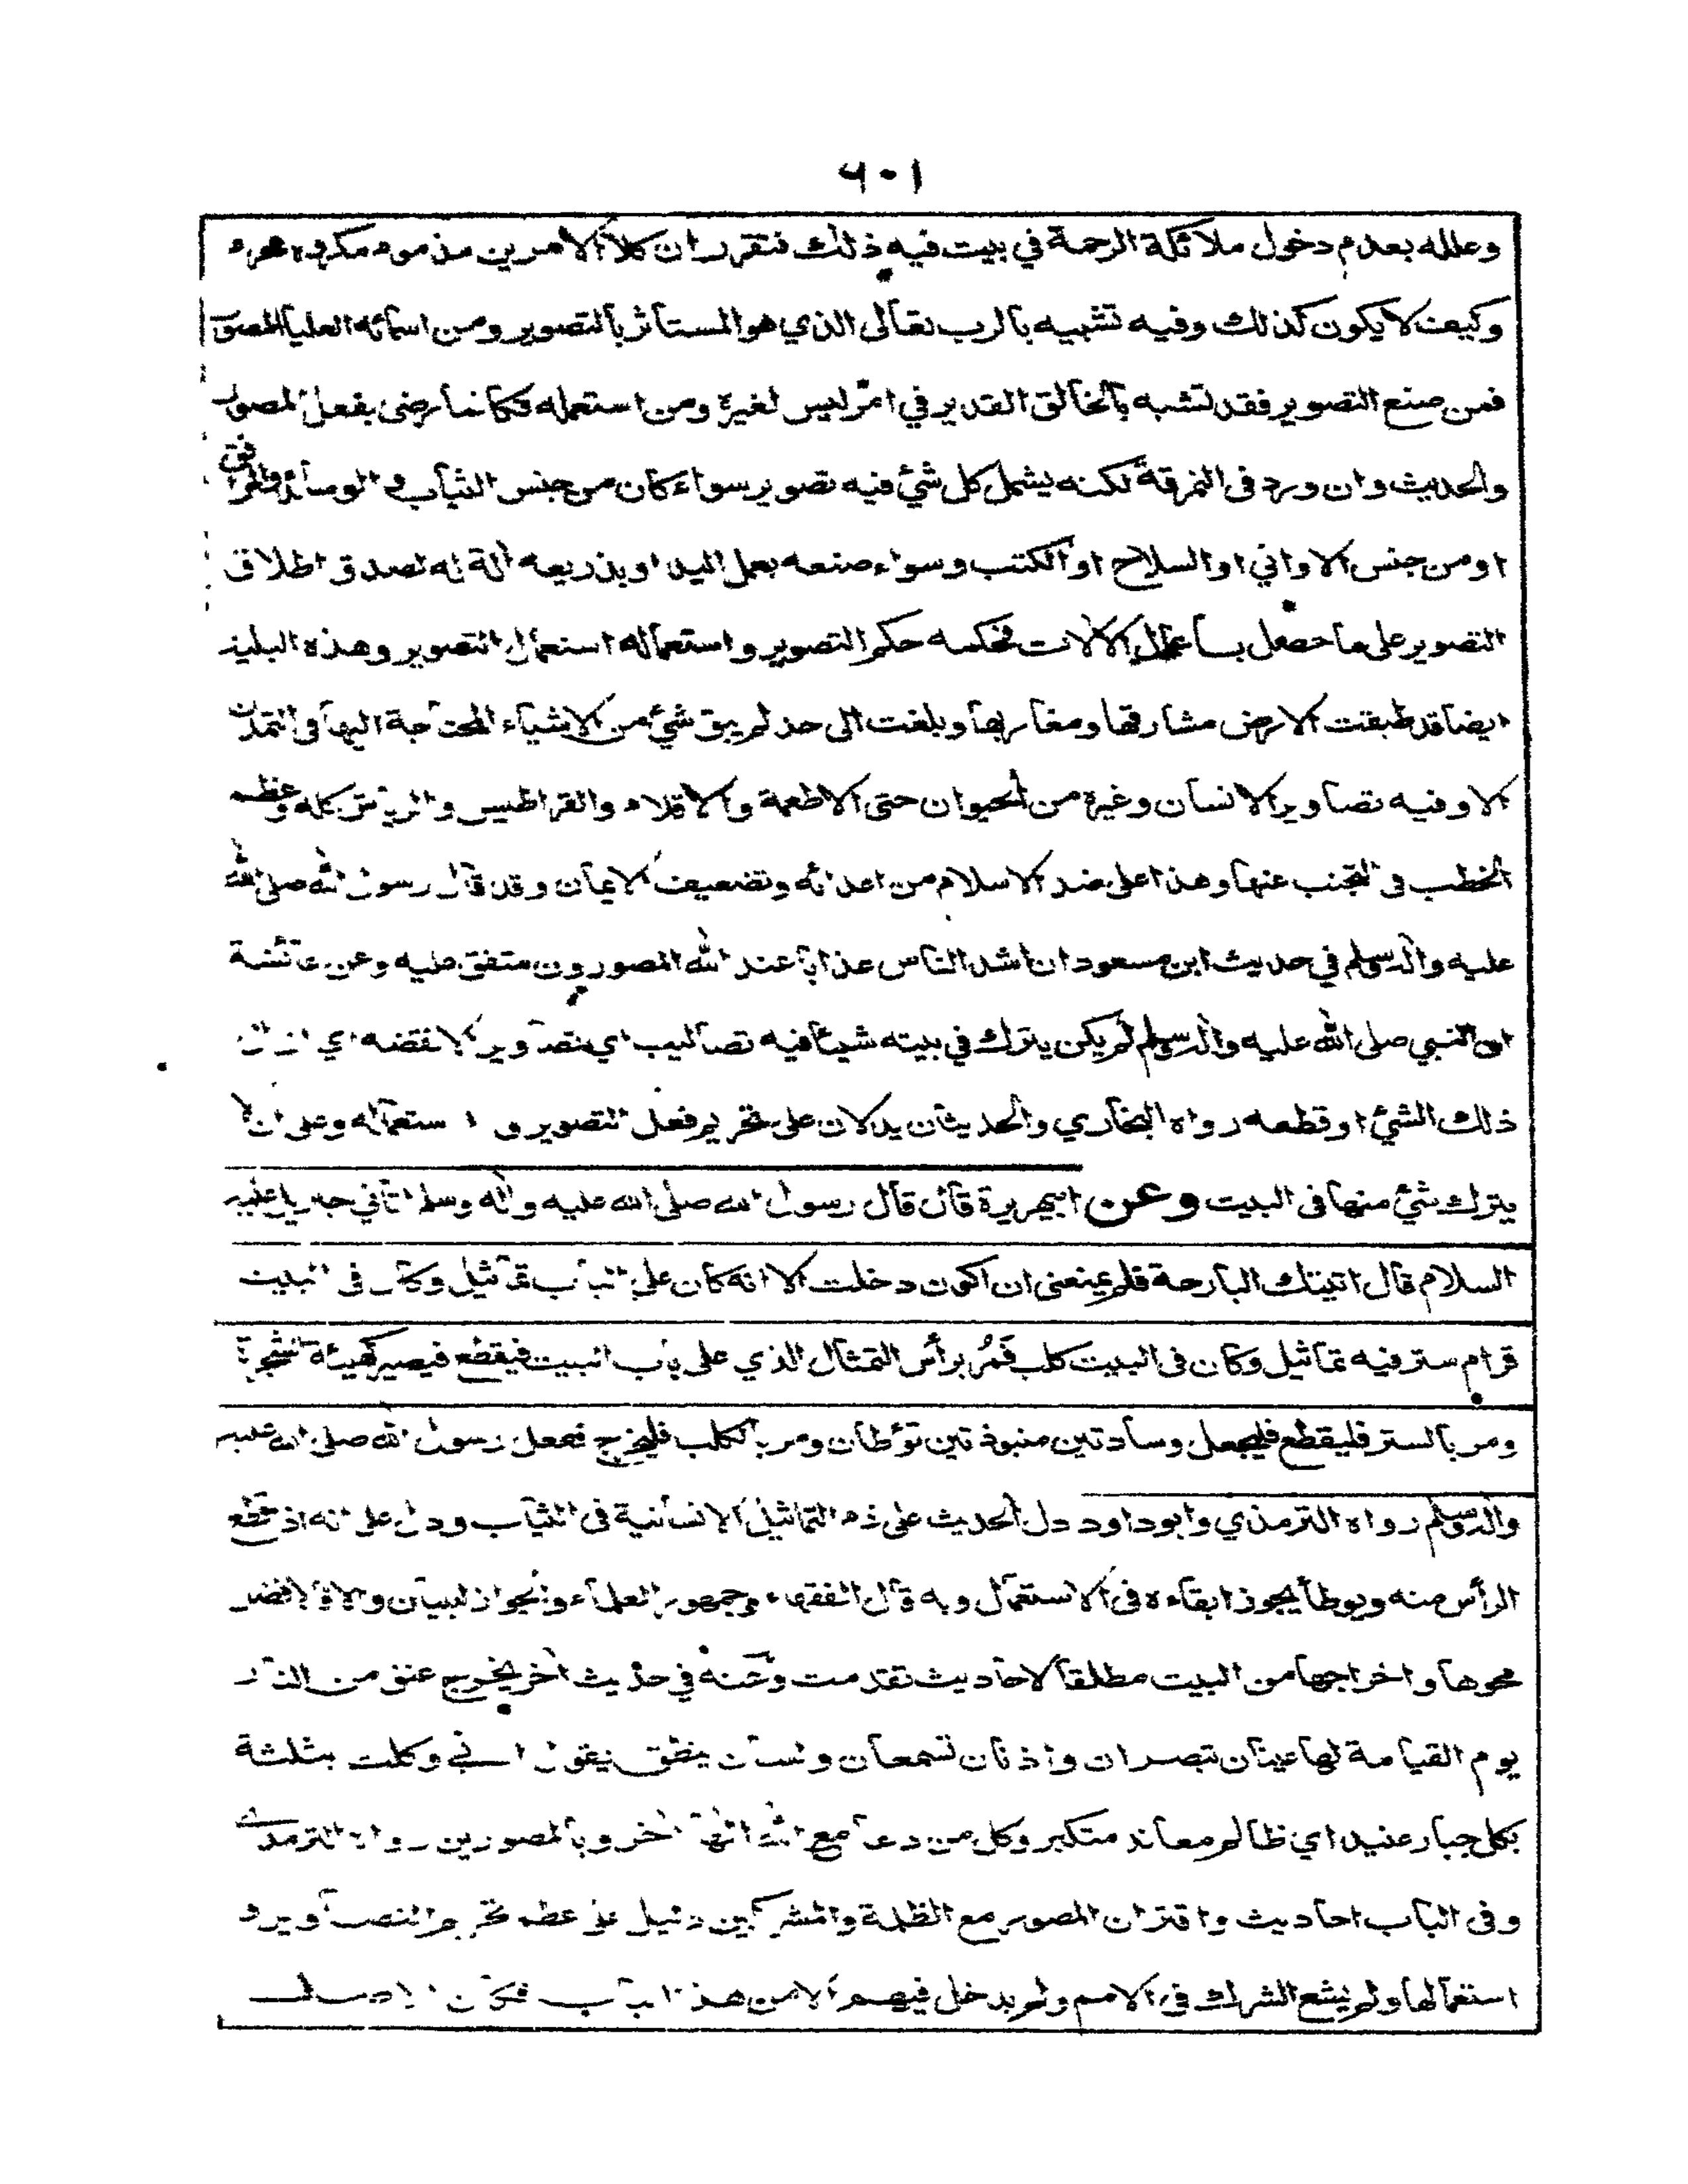 ٦٠١
وعلله بعدم دخول ملائكة الرحمة في بيت فيه ذلك فتقرر ان كلا الامرين مذموم مكروه محرم
وكيف لا يكون كذلك وفيه تشبيه بالرب تعالى الذي هو المستأثر بالتصوير ومن اسمائه العليا المصور
فمن صنع التصوير فقد تشبه بالخالق القدير في امر ليس لغيره ومن استعمله فكانما رضى بفعل المصور
والحديث وان ورد فى النمرقة لكنه يشمل كل شئ فيه تصوير سواء كان من جنس الثياب و الوسائد والمرافق
او من جنس الاواني او السلاح او الكتب وسواء صنعه بعمل اليد او بذريعه ألة له لصدق اطلاق
التصوير على ما حصل باعمال الالات فحكمه حكم التصوير واستعماله استعمال التصوير وهذه البلية
ايضا قد طبقت الارض مشارقها ومغاربها وبلغت الى حد لم يبق شئ من الاشياء المحتاجة اليها فى التمدن
الا وفيه تصاوير الانسان وغيره من الحيوان حتى الاطعمة والاقلام والقراطيس والرياش كله وعظم
الخطب فى التجنب عنها وهذا على ضد الاسلام من اعدائه وتضعيف الايمان وقد قال رسول الله صلى الله
عليه وأله وسلم في حديث ابن مسعود ان اشد الناس عذابا عند الله المصورون متفق عليه وعن عائشة
ان النبي صلى الله عليه وأله وسلم لم يكن يترك في بيته شيئا فيه تصاليب اي تصاوير الا نقضه اي ازال
ذلك الشئ او قطعه رواه البخاري والحديثان يدلان على تحريم فعل التصوير و استعماله وعلى ان لا
يترك شئ منها فى البيت وعن ابيهريرة قال قال رسول الله صلى الله عليه وأله وسلم اتاني جبريل عليه
السلام قال اتيتك البارحة فلم يمنعنى ان اكون دخلت الا انه كان على الباب تماثيل وكان فى البيت
قرام ستر فيه تماثيل وكان فى البيت كلب فمُر برأس التمثال الذي على باب البيت فيقطع فيصير كهيئة الشجرة
ومر بالستر فليقطع فليجعل وسادتين منبوذتين توُطان ومر بالكلب فليخرج ففعل رسول الله صلى الله عليه
وأله وسلم رواه الترمذي وابوداود دل الحديث على ذم التماثيل الانسانية فى الثياب ودل على انه اذ قطع
الرأس منه ويوطأ يجوز ابقاءه فى الاستعمال وبه قال الفقهاء وجمهور العلماء والجواز لبيان والا فالافضل
محوها واخراجها من البيت مطلقا لاحاديث تقدمت وعنه في حديث أخر يخرج عنق من النار
يوم القيامة لها عينان تبصران واذنان تسمعان ولسان ينطق يقول اني وكلت بثلثة
بكل جبار عنيد اي ظالم معاند متكبر وكل من دعا مع الله الها أخر وبالمصورين رواه الترمذي
وفى الباب احاديث واقتران المصور مع الظلمة والمشركين دليل على عظم تحريم التصاوير و
استعمالها ولم يشع الشرك فى الامم ولم يدخل فيهم الا من هذا الباب فكان